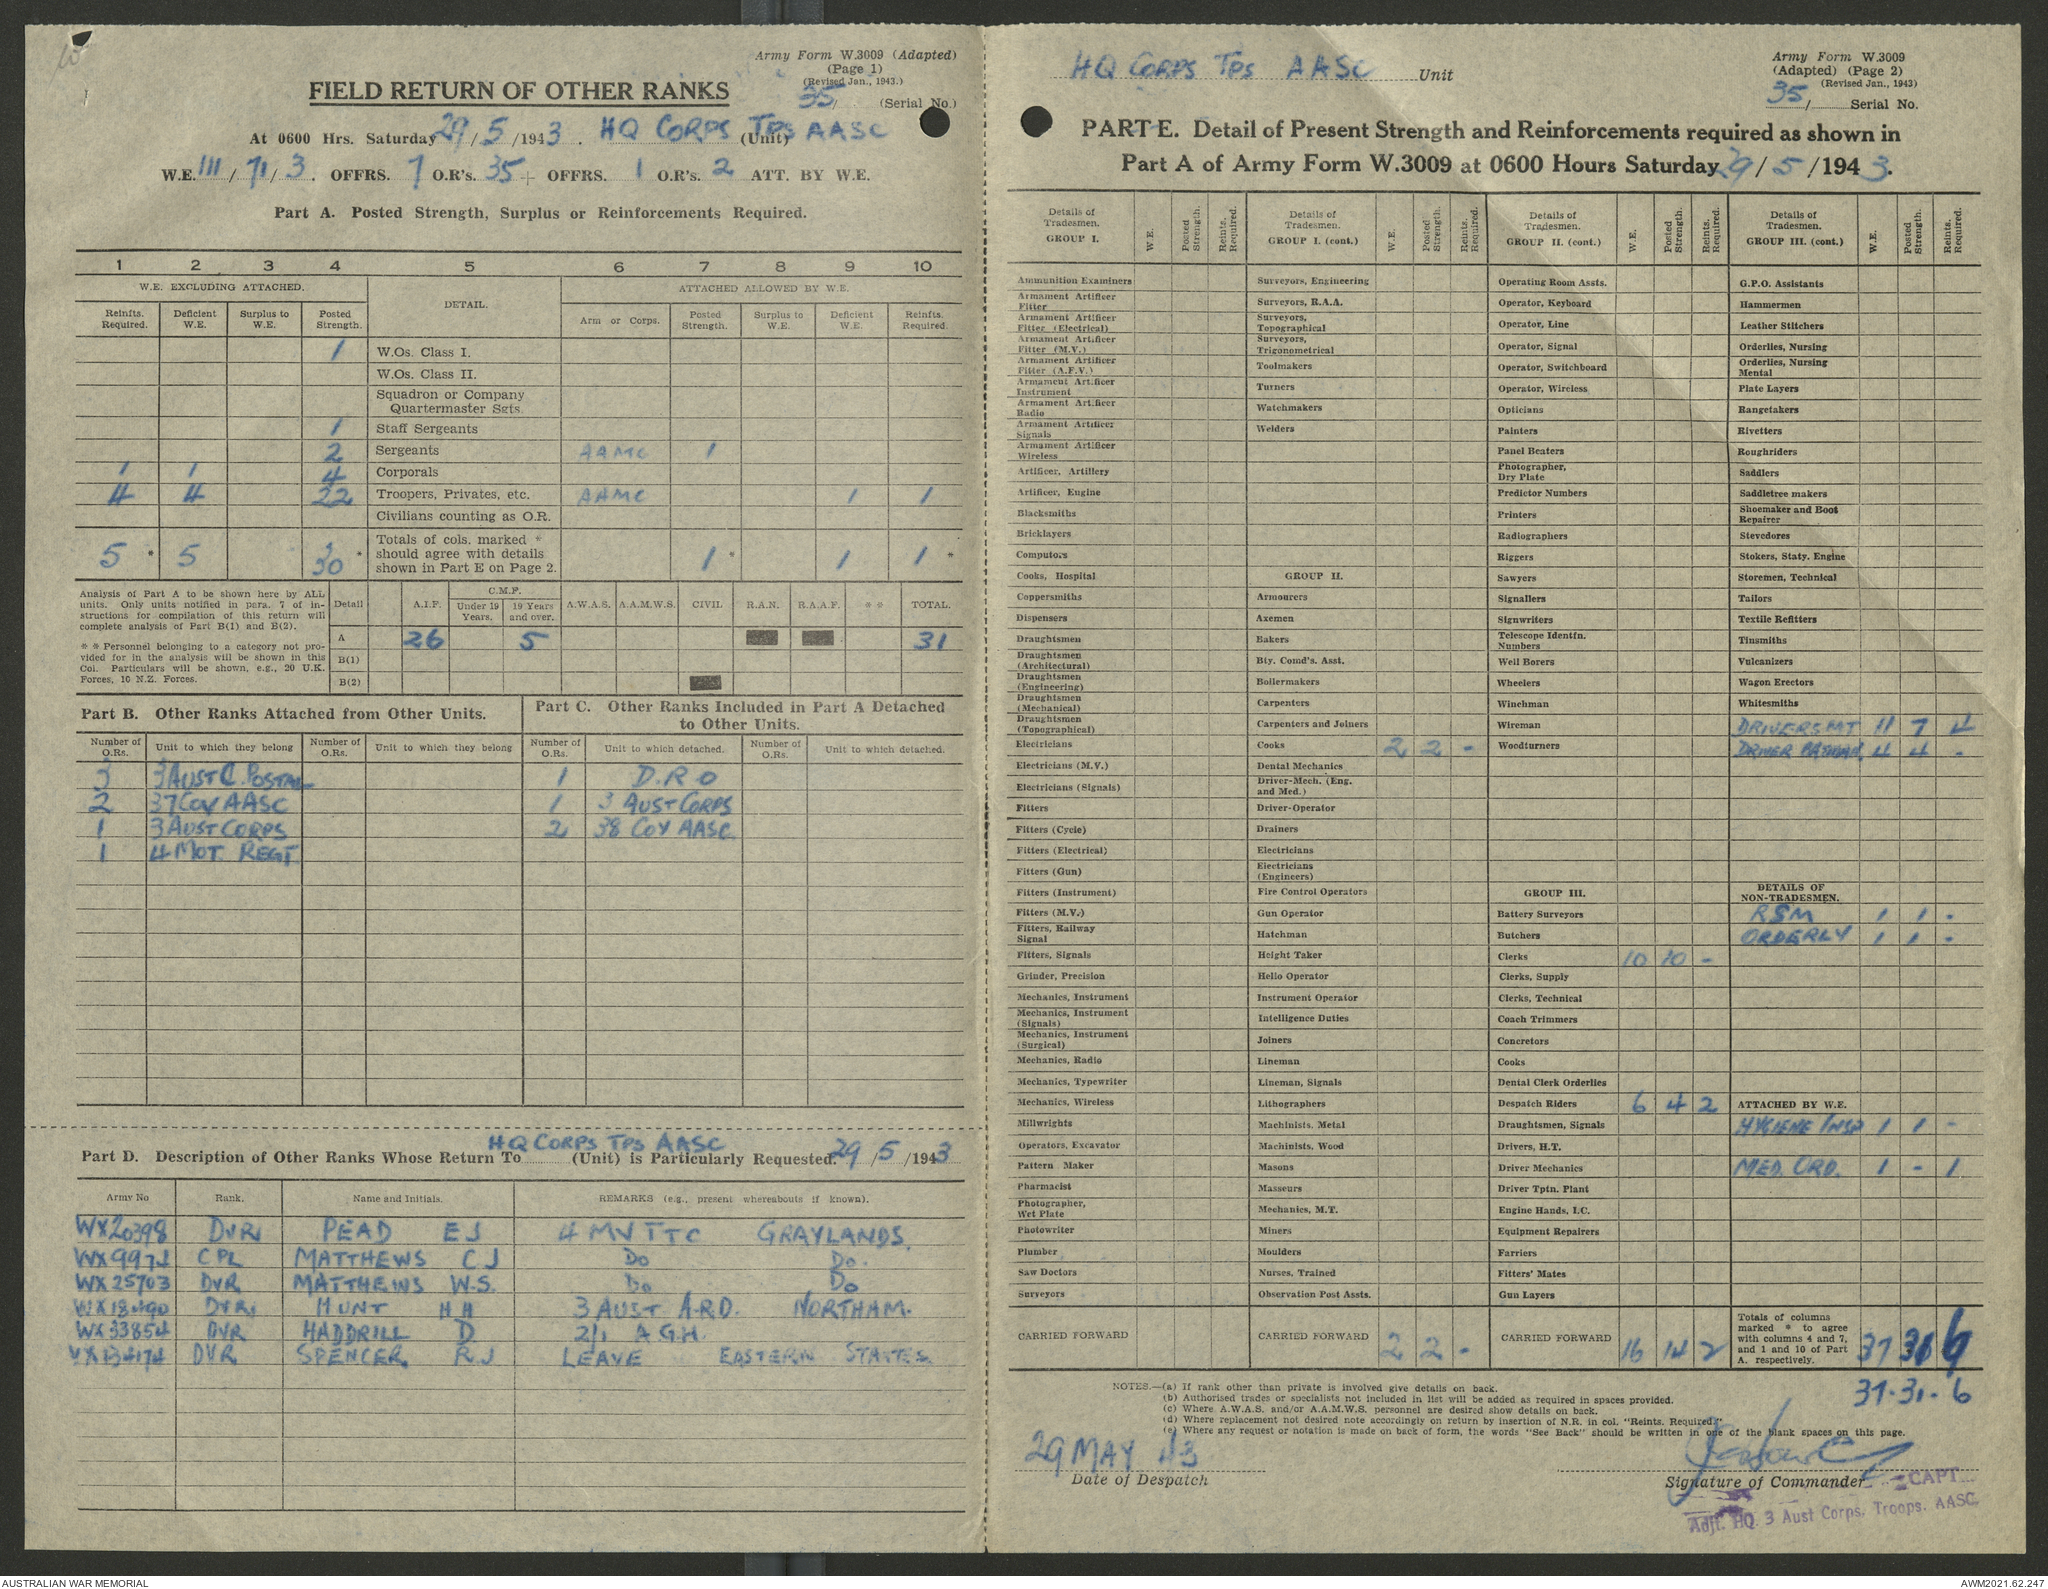 Army Form W.3009 (Adapted)
(Page 1)
(Revised Jan., 1943.)
FIELD RETURN OF OTHER RANKS
35/ (Serial No.)
At 0600 Hrs. Saturday 29/5/1943. HQ CORPS TPS AASC (Unit)
W.E. III/71/3. OFFRS. 7 O.R's. 35 + OFFRS. 1 O.R's. 2 ATT. BY W.E.
Part A. Posted Strength, Surplus or Reinforcements Required.
1 2 3 4 5 6 7 8 9 10
W.E. EXCLUDING ATTACHED. DETAIL. ATTACHED ALLOWED BY W.E.
Reinfts. Required. Deficient W.E. Surplus to W.E. Posted Strength. Arm or Corps. Posted Strength. Surplus to W.E. Deficient W.E. Reinfts. Required.
1 W.Os. Class I.
W.Os. Class II.
Squadron or Company
Quartermaster Sgts.
1 Staff Sergeants
2 Sergeants AAMC 1
1 1 4 Corporals
4 4 22 Troopers, Privates, etc. AAMC 1 1
Civilians counting as O.R.
Totals of cols. marked *
5 * 5 30 * should agree with details 1 * 1 1 *
shown in Part E on Page 2.
Analysis of Part A to be shown here by ALL
units. Only units notified in para. 7 of in-
structions for compilation of this return will
complete analysis of Part B(1) and B(2).
* * Personnel belonging to a category not pro-
vided for in the analysis will be shown in this
Col. Particulars will be shown, e.g., 20 U.K.
Forces, 10 N.Z. Forces.
Detail A.I.F. C.M.F. Under 19 Years. 19 Years and over. A.W.A.S. A.A.M.W.S. CIVIL R.A.N. R.A.A.F. * * TOTAL.
A 26 5 31
B(1)
B(2)
Part B. Other Ranks Attached from Other Units.
Number of O.Rs. Unit to which they belong Number of O.Rs. Unit to which they belong
3 3 AUST C. POSTAL
2 37 COY AASC
1 3 AUST CORPS
1 4 MOT. REGT
Part C. Other Ranks Included in Part A Detached
to Other Units.
Number of O.Rs. Unit to which detached. Number of O.Rs. Unit to which detached.
1 D.R.O
1 3 AUST CORPS
2 38 COY AASC
HQ CORPS TPS AASC
Part D. Description of Other Ranks Whose Return To (Unit) is Particularly Requested. 29/5/1943
Army No Rank. Name and Initials. REMARKS (e.g., present whereabouts if known).
WX20398 DVR PEAD EJ 4 MV TTC GRAYLANDS.
WX9974 CPL MATTHEWS CJ DO DO.
WX25703 DVR MATTHEWS W.S. DO DO
WX18490 DVR HUNT HH 3 AUST A.R.D. NORTHAM.
WX33854 DVR HADDRILL D 2/1 A.G.H.
VX134174 DVR SPENCER RJ LEAVE EASTERN STATES.
HQ CORPS TPS AASC Unit
Army Form W.3009
(Adapted) (Page 2)
(Revised Jan., 1943)
35/ Serial No.
PART E. Detail of Present Strength and Reinforcements required as shown in
Part A of Army Form W.3009 at 0600 Hours Saturday 29/5/1943.
Details of Tradesmen. GROUP I. W.E. Posted Strength. Reints. Required.
Ammunition Examiners
Armament Artificer Fitter
Armament Artificer Fitter (Electrical)
Armament Artificer Fitter (M.V.)
Armament Artificer Fitter (A.F.V.)
Armament Artificer Instrument
Armament Artificer Radio
Armament Artificer Signals
Armament Artificer Wireless
Artificer, Artillery
Artificer, Engine
Blacksmiths
Bricklayers
Computors
Cooks, Hospital
Coppersmiths
Dispensers
Draughtsmen
Draughtsmen (Architectural)
Draughtsmen (Engineering)
Draughtsmen (Mechanical)
Draughtsmen (Topographical)
Electricians
Electricians (M.V.)
Electricians (Signals)
Fitters
Fitters (Cycle)
Fitters (Electrical)
Fitters (Gun)
Fitters (Instrument)
Fitters (M.V.)
Fitters, Railway Signal
Fitters, Signals
Grinder, Precision
Mechanics, Instrument
Mechanics, Instrument (Signals)
Mechanics, Instrument (Surgical)
Mechanics, Radio
Mechanics, Typewriter
Mechanics, Wireless
Millwrights
Operators, Excavator
Pattern Maker
Pharmacist
Photographer, Wet Plate
Photowriter
Plumber
Saw Doctors
Surveyors
CARRIED FORWARD
Details of Tradesmen. GROUP I. (cont.) W.E. Posted Strength. Reints. Required.
Surveyors, Engineering
Surveyors, R.A.A.
Surveyors, Topographical
Surveyors, Trigonometrical
Toolmakers
Turners
Watchmakers
Welders
GROUP II.
Armourers
Axemen
Bakers
Bty. Comd's. Asst.
Boilermakers
Carpenters
Carpenters and Joiners
Cooks 2 2 -
Dental Mechanics
Driver-Mech. (Eng. and Med.)
Driver-Operator
Drainers
Electricians
Electricians (Engineers)
Fire Control Operators
Gun Operator
Hatchman
Height Taker
Helio Operator
Instrument Operator
Intelligence Duties
Joiners
Lineman
Lineman, Signals
Lithographers
Machinists, Metal
Machinists, Wood
Masons
Masseurs
Mechanics, M.T.
Miners
Moulders
Nurses, Trained
Observation Post Assts.
CARRIED FORWARD 2 2 -
Details of Tradesmen. GROUP II. (cont.) W.E. Posted Strength. Reints. Required.
Operating Room Assts.
Operator, Keyboard
Operator, Line
Operator, Signal
Operator, Switchboard
Operator, Wireless
Opticians
Painters
Panel Beaters
Photographer, Dry Plate
Predictor Numbers
Printers
Radiographers
Riggers
Sawyers
Signallers
Signwriters
Telescope Identfn. Numbers
Well Borers
Wheelers
Winchman
Wireman
Woodturners
GROUP III.
Battery Surveyors
Butchers
Clerks 10 10 -
Clerks, Supply
Clerks, Technical
Coach Trimmers
Concretors
Cooks
Dental Clerk Orderlies
Despatch Riders 6 4 2
Draughtsmen, Signals
Drivers, H.T.
Driver Mechanics
Driver Tptn. Plant
Engine Hands, I.C.
Equipment Repairers
Farriers
Fitters' Mates
Gun Layers
CARRIED FORWARD 16 14 2
Details of Tradesmen. GROUP III. (cont.) W.E. Posted Strength. Reints. Required.
G.P.O. Assistants
Hammermen
Leather Stitchers
Orderlies, Nursing
Orderlies, Nursing Mental
Plate Layers
Rangetakers
Rivetters
Roughriders
Saddlers
Saddletree makers
Shoemaker and Boot Repairer
Stevedores
Stokers, Staty. Engine
Storemen, Technical
Tailors
Textile Refitters
Tinsmiths
Vulcanizers
Wagon Erectors
Whitesmiths
DRIVERS MT 11 7 4
DRIVER BATMAN 4 4 -
DETAILS OF NON-TRADESMEN.
RSM 1 1 -
ORDERLY 1 1 -
ATTACHED BY W.E.
HYGIENE INSP 1 1 -
MED. ORD. 1 - 1
Totals of columns marked * to agree with columns 4 and 7, and 1 and 10 of Part A. respectively. 37 31 6
37-31-6
NOTES.—(a) If rank other than private is involved give details on back.
(b) Authorised trades or specialists not included in list will be added as required in spaces provided.
(c) Where A.W.A.S. and/or A.A.M.W.S. personnel are desired show details on back.
(d) Where replacement not desired note accordingly on return by insertion of N.R. in col. "Reints. Required."
(e) Where any request or notation is made on back of form, the words "See Back" should be written in one of the blank spaces on this page.
29 MAY 43
Date of Despatch
Signature of Commander
CAPT.
Adjt. HQ. 3 Aust Corps, Troops. AASC
AUSTRALIAN WAR MEMORIAL
AWM2021.62.247